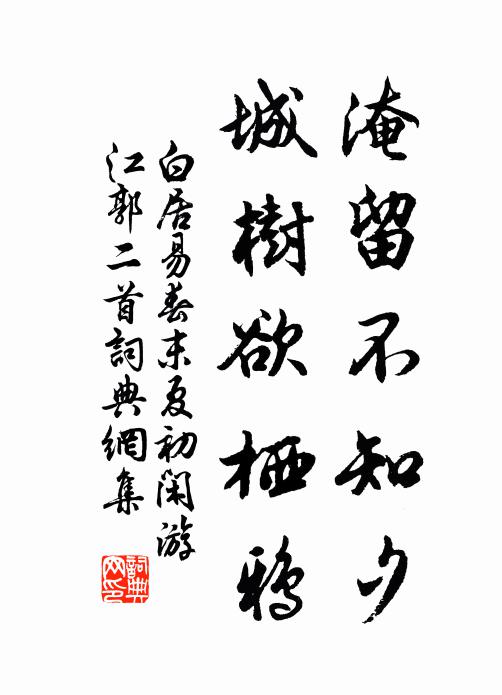 淹留不知夕
城樹欲栖鴉
白居易春末夏初閑游
江郭二首詞典網集
詞典
网印